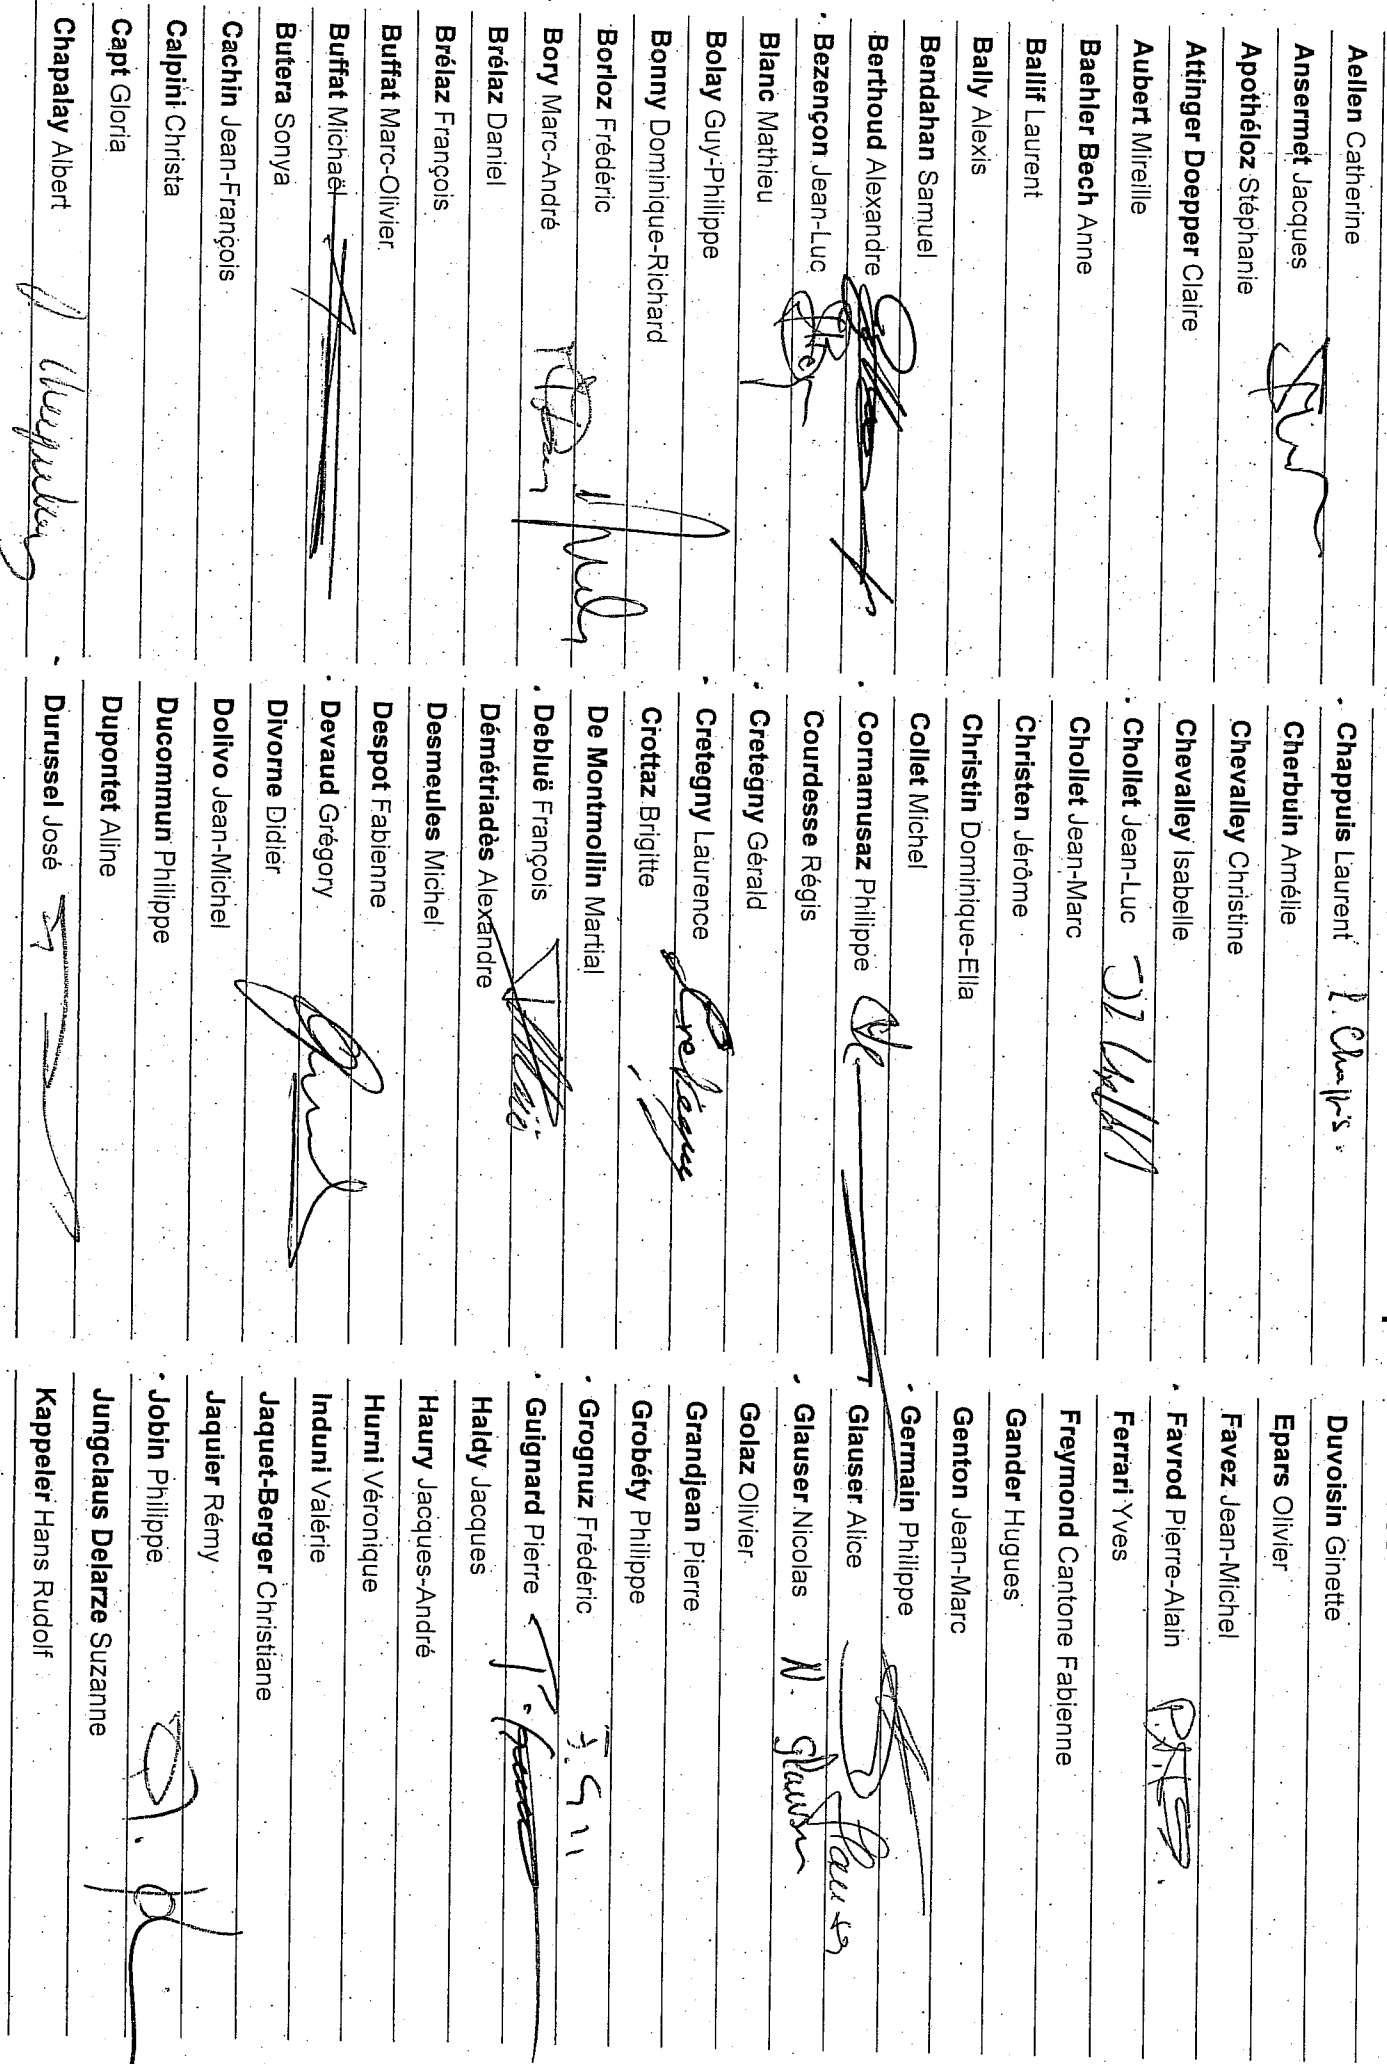 Aellen Catherine
Ansermet Jacques
Apothéloz Stéphanie
Attinger Doepper Claire
Aubert Mireille
Baehler Bech Anne
Ballif Laurent
Bally Alexis
Bendahan Samuel
Berthoud Alexandre
Bezençon Jean-Luc
Blanc Mathieu
Bolay Guy-Philippe
Bonny Dominique-Richard
Borloz Frédéric
Bory Marc-André
Brélaz Daniel
Brélaz François
Buffat Marc-Olivier
Buffat Michaël
Butera Sonya
Cachin Jean-François
Calpini Christa
Capt Gloria
Chapalay Albert
Chappuis Laurent L. Chappuis.
Cherbuin Amélie
Chevalley Christine
Chevalley Isabelle
Chollet Jean-Luc
Chollet Jean-Marc
Christen Jérôme
Christin Dominique-Ella
Collet Michel
Cornamusaz Philippe
Courdesse Régis
Cretegny Gérald
Cretegny Laurence Cretegny
Crottaz Brigitte
De Montmollin Martial
Debluë François
Démétriadès Alexandre
Desmeules Michel
Despot Fabienne
Devaud Grégory
Divorne Didier
Dolivo Jean-Michel
Ducommun Philippe
Dupontet Aline
Durussel José
Duvoisin Ginette
Epars Olivier
Favez Jean-Michel
Favrod Pierre-Alain
Ferrari Yves
Freymond Cantone Fabienne
Gander Hugues
Genton Jean-Marc
Germain Philippe
Glauser Alice Glauser
Glauser Nicolas N. Glauser
Golaz Olivier
Grandjean Pierre
Grobéty Philippe
Grognuz Frédéric
Guignard Pierre
Haldy Jacques
Haury Jacques-André
Hurni Véronique
Induni Valérie
Jaquet-Berger Christiane
Jaquier Rémy
Jobin Philippe
Jungclaus Delarze Suzanne
Kappeler Hans Rudolf